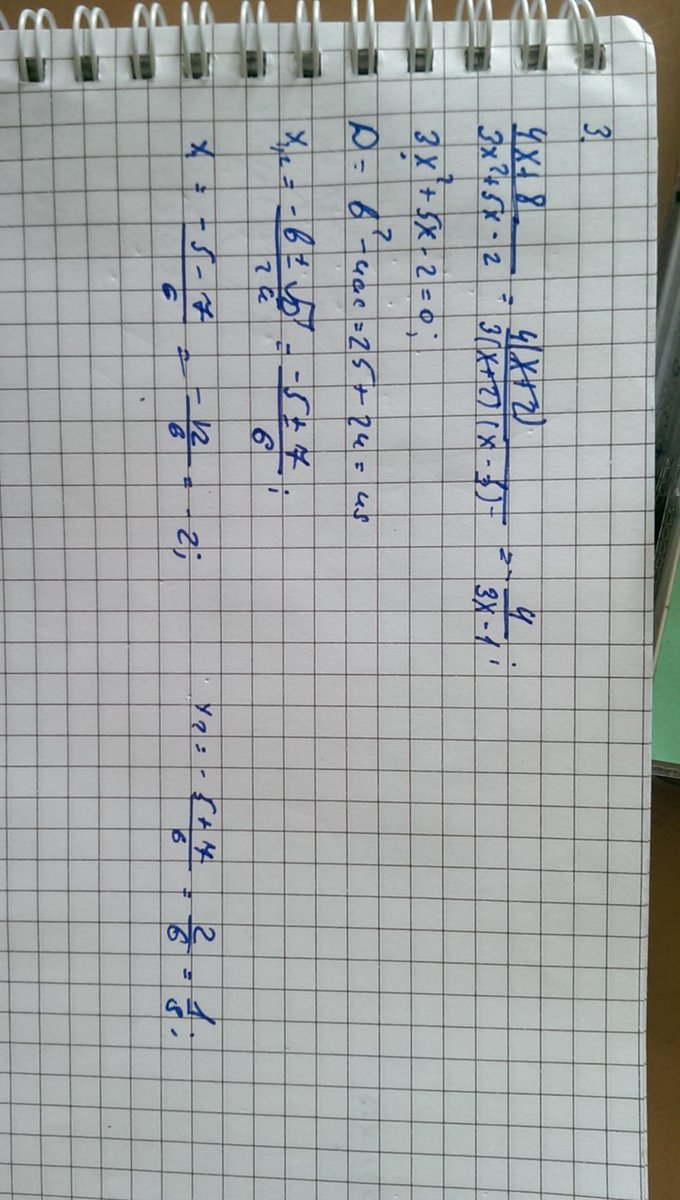 3.
(4x + 8)/(3x² + 5x - 2) = 4(x+2)/(3(x+2)(x - 1/3)) = 4/(3x - 1);
3x² + 5x - 2 = 0;
D = b² - 4ac = 25 + 24 = 49
x₁,₂ = (-b ± √D)/2a = (-5 ± 7)/6;
x₁ = (-5 - 7)/6 = -12/6 = -2; x₂ = (-5 + 7)/6 = 2/6 = 1/3;